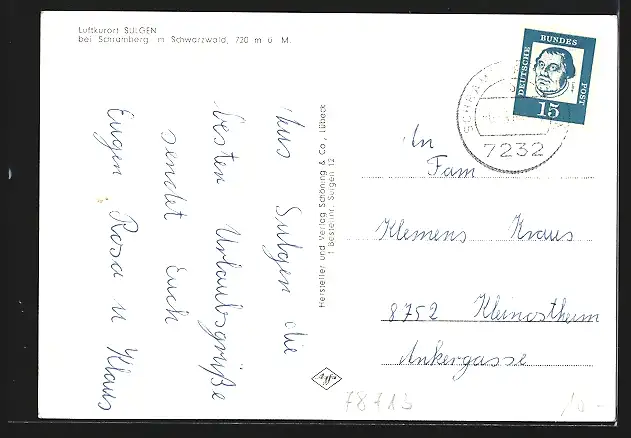 Luftkurort SULGEN
bei Schramberg im Schwarzwald, 720 m ü. M.
Aus Sulgen die
besten Urlaubsgrüße
sendet Euch
Eugen Rosa u Klaus
Hersteller und Verlag Schöning & Co., Lübeck
1 Bestellnr. Sulgen 12
DEUTSCHE
BUNDES
POST
15
7232
An
Fam
Klemens Kraus
8752 Kleinostheim
Ankergasse
78713
10-